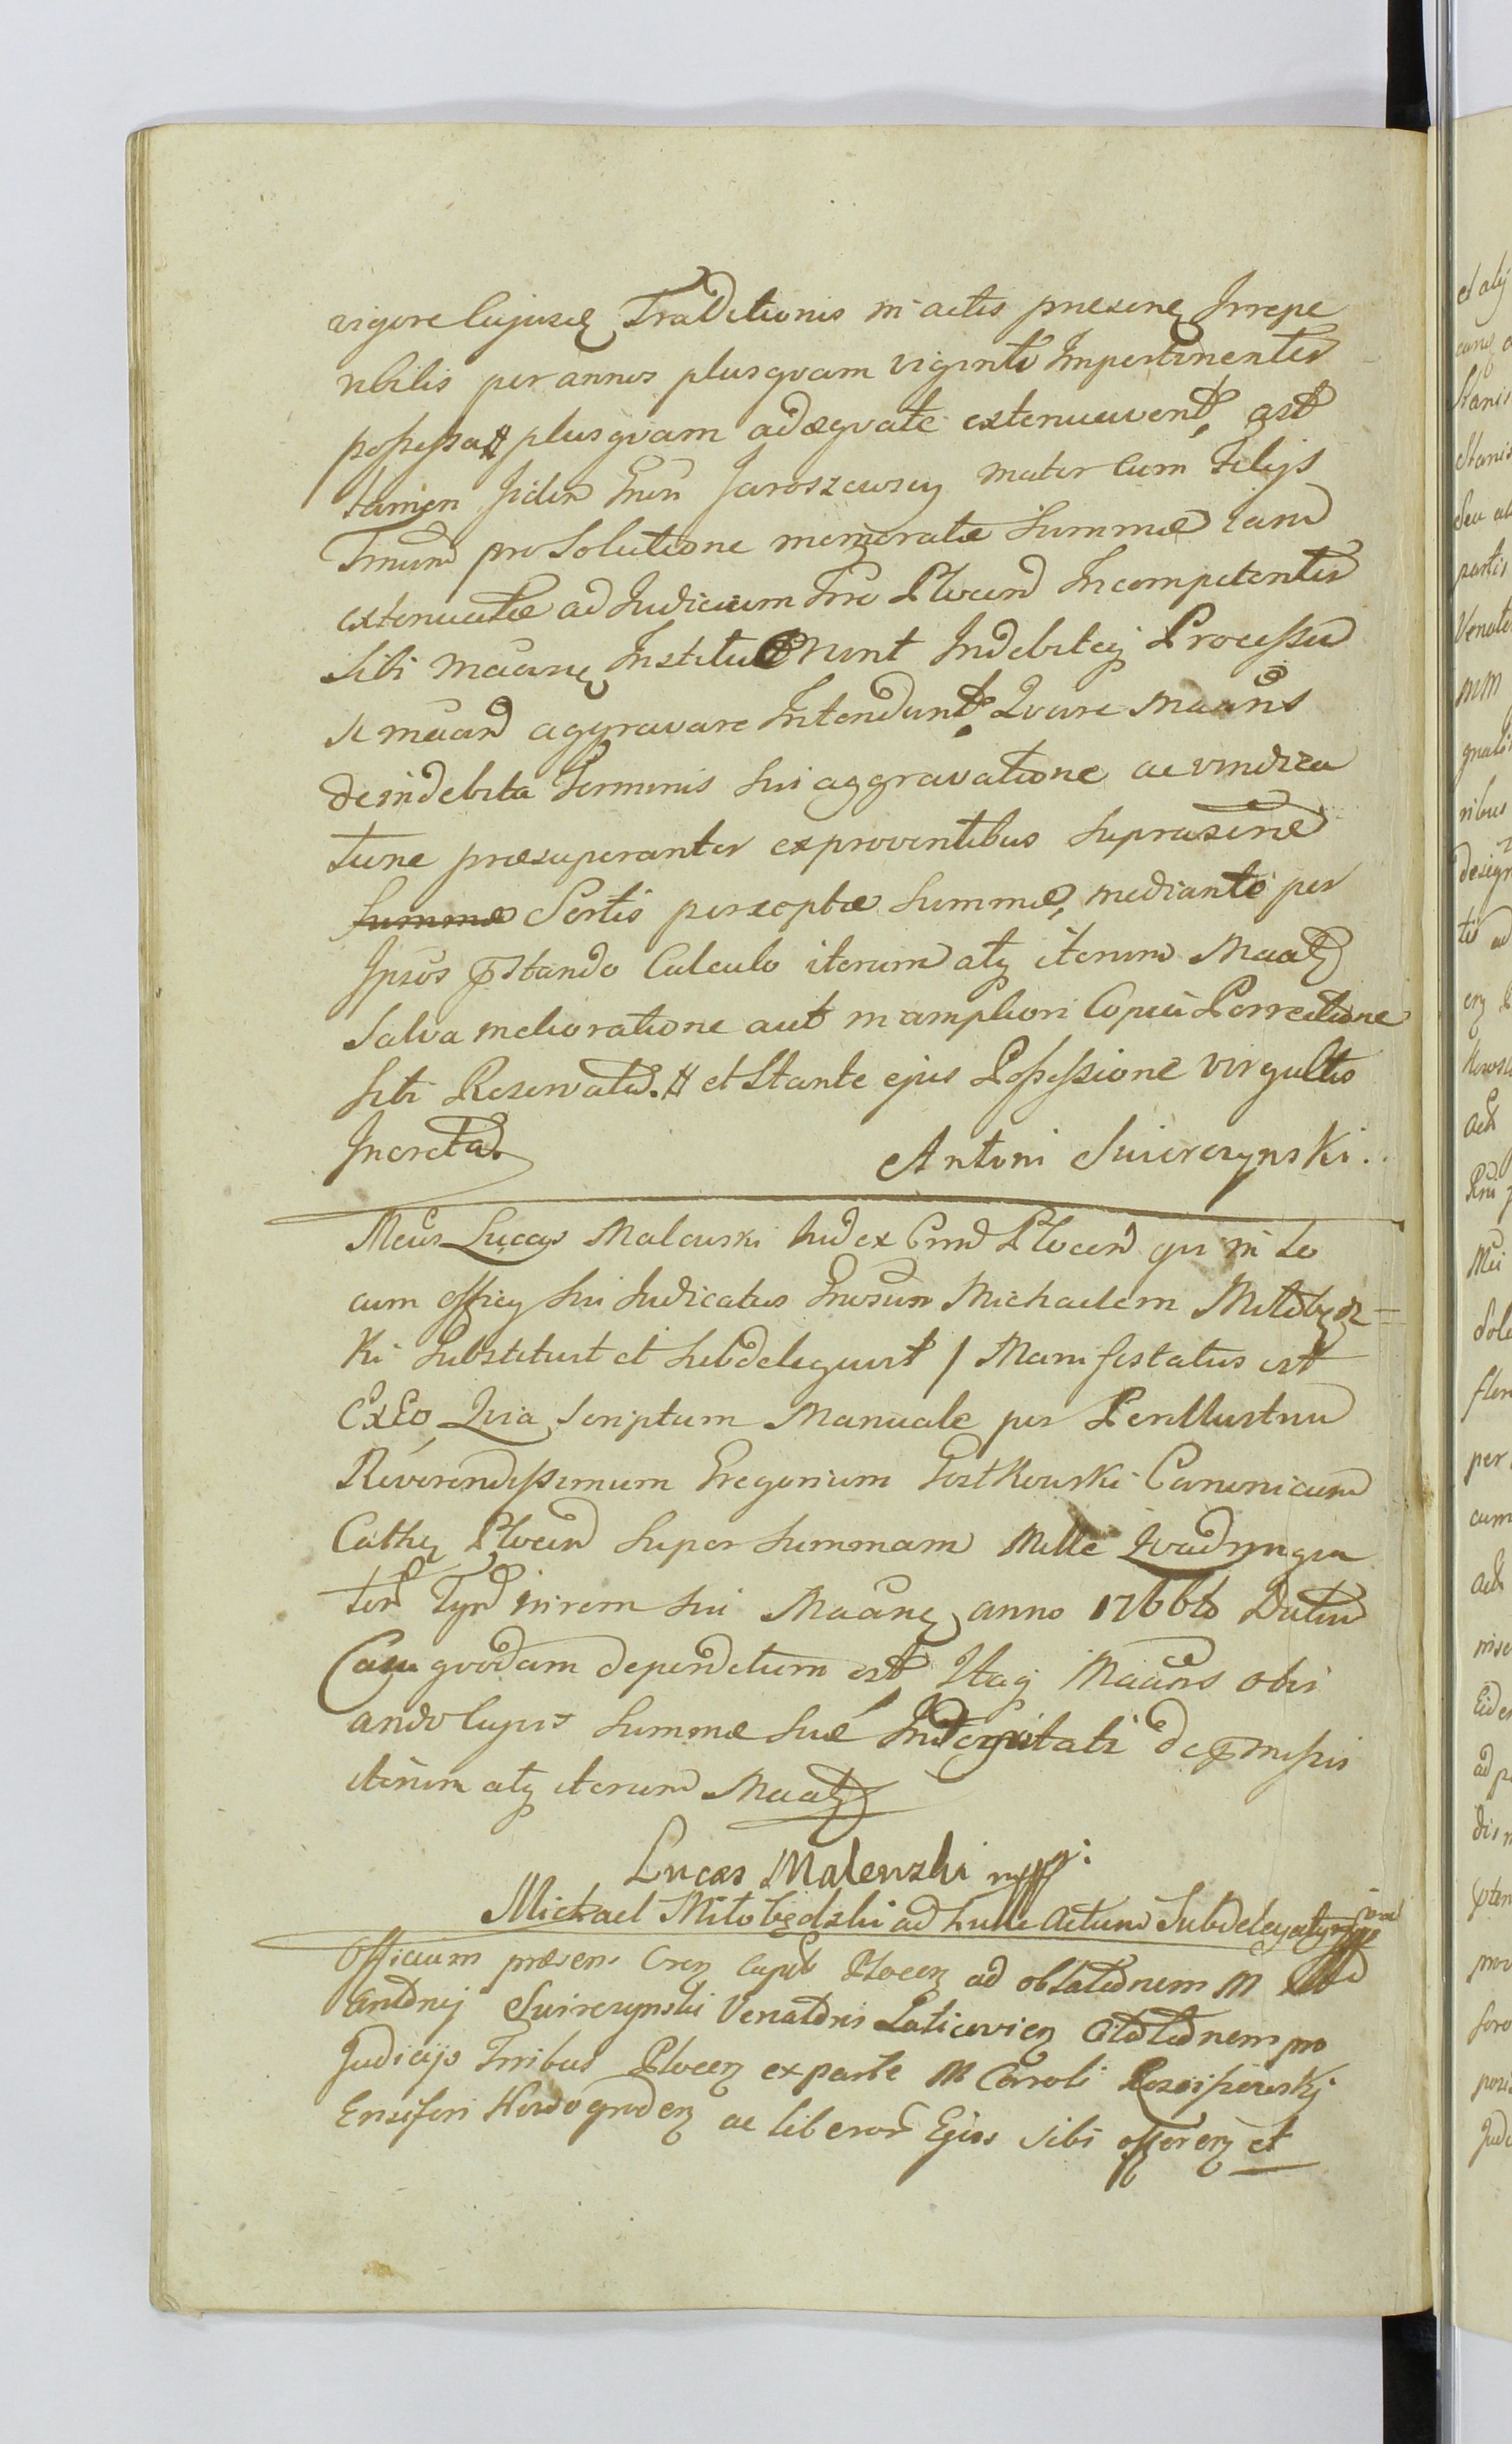 vigore Cujuscq Traditionis in actis præsenq Irrepe
ribilis per annos plusqvam viginti Impertinenter
possessa # plusqvam adæqvate extenuaverit, ast
tamen Iidem Gnen Jaroszewscy mater Cum Filijs
Tmum pro Solutione memoratæ Summæ iam
extenuatæ ad Judicium Trre Plocen Incompetenter
Sibi Maanq Instituerunt Indebiteq Processu
se maan aggravare Intendunt, Qvare Maans
de indebita Terminis sui aggravatione ac vindica
tione præsuperanter ex proventibus Suprascrie
Summæ Sortis perceptæ Summæ, mediante per
Ipsos pstando Calculo iterum atq iterum Maatq
Salva melioratione aut in ampliori Copia Porrectione
Sibi Reservata. # et Stante ejus Possessione virgultis
Increta.
Antoni Swierczynski
Mcus Lucas Malewski Iudex Cmd Plocen qvi in lo
cum officij sui Iudicatus Gnosum Michaelem Miłobędz=
ki Substituit et Subdeleguit / Manifestatus est
Ex Eo, Qvia Scriptum Manuale per Perillustrem
Reverendissimum Gregorium Gostkowski Canonicum
Cathq Plocen Super Summam Mille Qvadringen
ten Tyn in rem sui Maanq anno 1766to Datum
Casu qvodam deperditum est, Itaq Maans obvi
ando Cujus Summæ Suæ Indemnitati de pmissis
iterum atq iterum Maatq
Lucas Malewski mpp:
Michael Miłobędzki ad hunc Actum Subdelegatus mpp
Officium præsens Cren Capit Plocen ad oblationem M
Antonij Swierczynski Venatoris Laticovien Citationem pro
Judicijs Trribus Plocen ex parte M Caroli Rosciszewskj
Ensiferi Nowogroden ac liberor Ejus Sibi offeren et